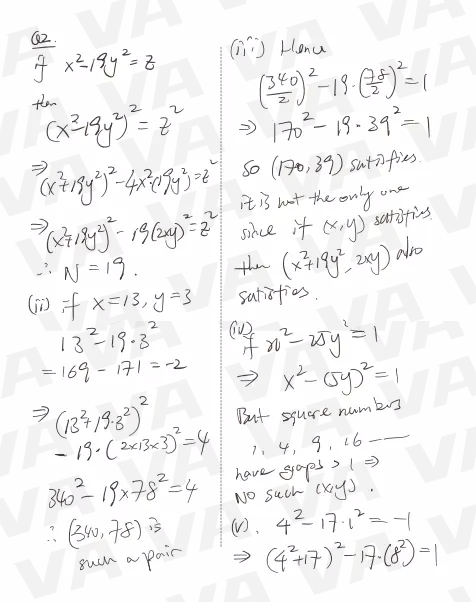 Q2.
If x²-19y²=z
then
(x²-19y²)²=z²
⇒
(x²+19y²)²-4x²·(19y²)=z²
⇒ (x²+19y²)²-19(2xy)²=z²
∴ N=19.
(ii) If x=13, y=3
13²-19·3²
=169-171=-2
⇒ (13²+19·3²)²
-19·(2×13×3)²=4
340²-19×78²=4
∴ (340,78) is
such a pair
(iii) Hence
(340/2)²-19·(78/2)²=1
⇒ 170²-19·39²=1
so (170,39) satisfies.
it is not the only one
since if (x,y) satisfies
then (x²+19y², 2xy) also
satisfies.
(iv)
If x²-25y²=1
⇒ x²-(5y)²=1
But square numbers
1, 4, 9, 16
have gaps >1 ⇒
No such (x,y).
(v). 4²-17·1²=-1
⇒ (4²+17)²-17·(8²)=1